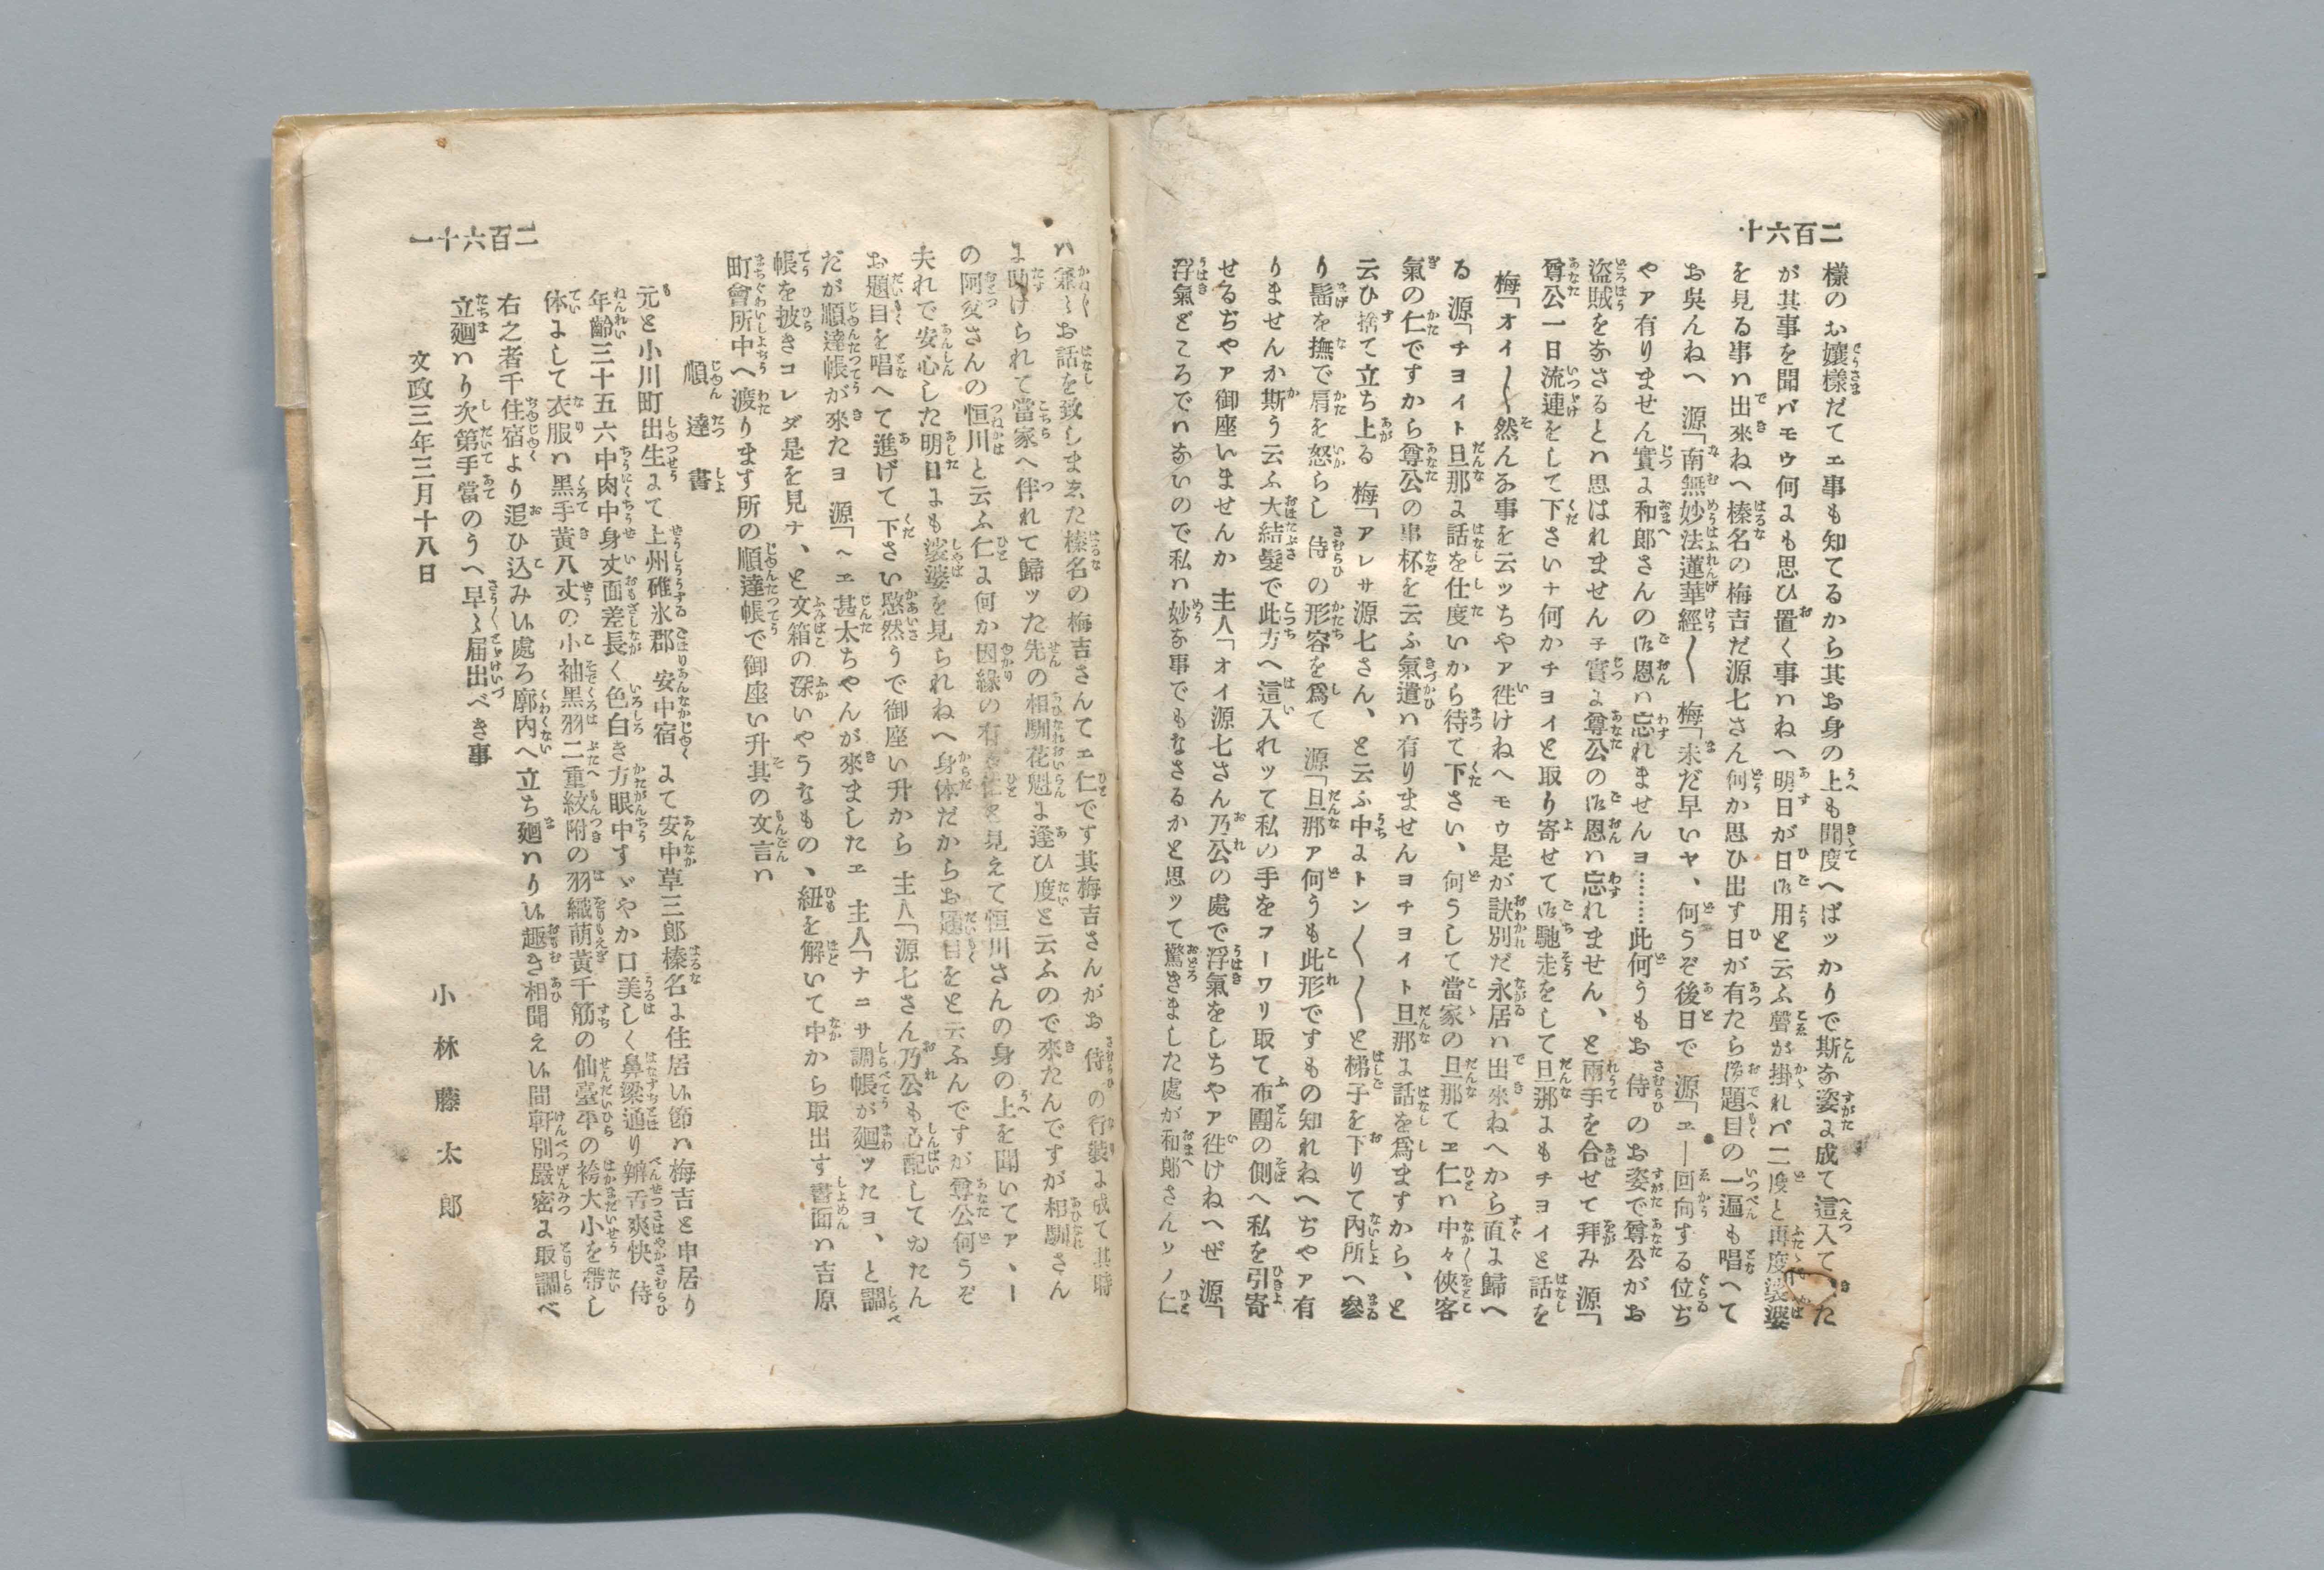 二百六十
樣のお孃樣だてエ事も知てるから其お身の上も聞度へばッかりで斯な姿に成て這入て た
が其事を聞バモウ何にも思ひ置く事ハねへ明日が日御用と云ふ聲が掛れバ二度と再度裟婆
を見る事ハ出來ねへ榛名の梅吉だ源七さん何か思ひ出す日が有たら御題目の一遍も唱へて
お吳んねへ 源「南無妙法蓮華經〳〵 梅「未だ早いヤ、何うぞ後日で 源「エー回向する位ぢ
やア有りません實に和郎さんの御恩ハ忘れませんヨ………此何うもお侍のお姿で尊公がお
盜賊をなさるとハ思はれません子實に尊公の御恩ハ忘れません、と兩手を合せて拜み 源「
尊公一日流連をして下さいナ何かチヨイと取り寄せて御馳走をして旦那にもチヨイと話を
梅「オイ〳〵然んな事を云ッちやア徃けねへモウ是が訣別だ永居ハ出來ねへから直に歸へ
る 源「チヨイト旦那に話を仕度いから待て下さい、何うして當家の旦那てエ仁ハ中々俠客
氣の仁ですから尊公の事杯を云ふ氣遣ハ有りませんヨチヨイト旦那に話を爲ますから、と
云ひ捨て立ち上る 梅「アレサ源七さん、と云ふ中にトン〳〵〳〵と梯子を下りて內所へ參
り髷を撫で肩を怒らし侍の形容を爲て 源「旦那ア何うも此形ですもの知れねへぢやア有
りませんか斯う云ふ大結髮で此方へ這入れッて私の手をコーワリ取て布團の側へ私を引寄
せるぢやア御座いませんか 主人「オイ源七さん乃公の處で浮氣をしちやア徃けねへぜ 源「
浮氣どころでハないので私ハ妙な事でもなさるかと思ッて驚きました處が和郎さんソノ仁
二百六十一
ハ兼〻お話を致しまた榛名の梅吉さんてエ仁です其梅吉さんがお侍の行裝に成て其時
に助けられて當家へ伴れて歸ッた先の相馴花魁に逢ひ度と云ふので來たんですが相馴さん
の阿爻さんの恒川と云ふ仁に何か因緣の有る仁と見えて恒川さんの身の上を聞いてア、ー
夫れで安心した明日にも裟婆を見られねへ身体だからお題目をと云ふんですが尊公何うぞ
お題目を唱へて進げて下さい愍然うで御座い升から 主人「源七さん乃公も心配してゐたん
だが順達帳が來たヨ 源「ヘエ甚太ちやんが來ましたエ 主人「ナニサ調帳が廻ッたヨ、と調
帳を披きコレダ是を見ナ、と文箱の深いやうなもの、紐を解いて中から取出す書面ハ吉原
町會所中へ渡ります所の順達帳で御座い升其の文言ハ
順達書
元と小川町出生にて上州碓氷郡安中宿にて安中草三郎榛名に住居い節ハ梅吉と申居り
年齡三十五六中肉中身丈面差長く色白き方眼中すゞやか口美しく鼻梁通り辨舌爽快侍
体にして衣服ハ黑手黃八丈の小袖黑羽二重紋附の羽織萠黃千筋の仙臺平の袴大小を帶し
右之者千住宿より追ひ込み候處ろ廓內へ立ち廻ハり候趣き相聞え候間軒別嚴密に取調べ
立廻ハり次第手當のうへ早〻届出べき事
文政三年三月十八日
小林藤太郎